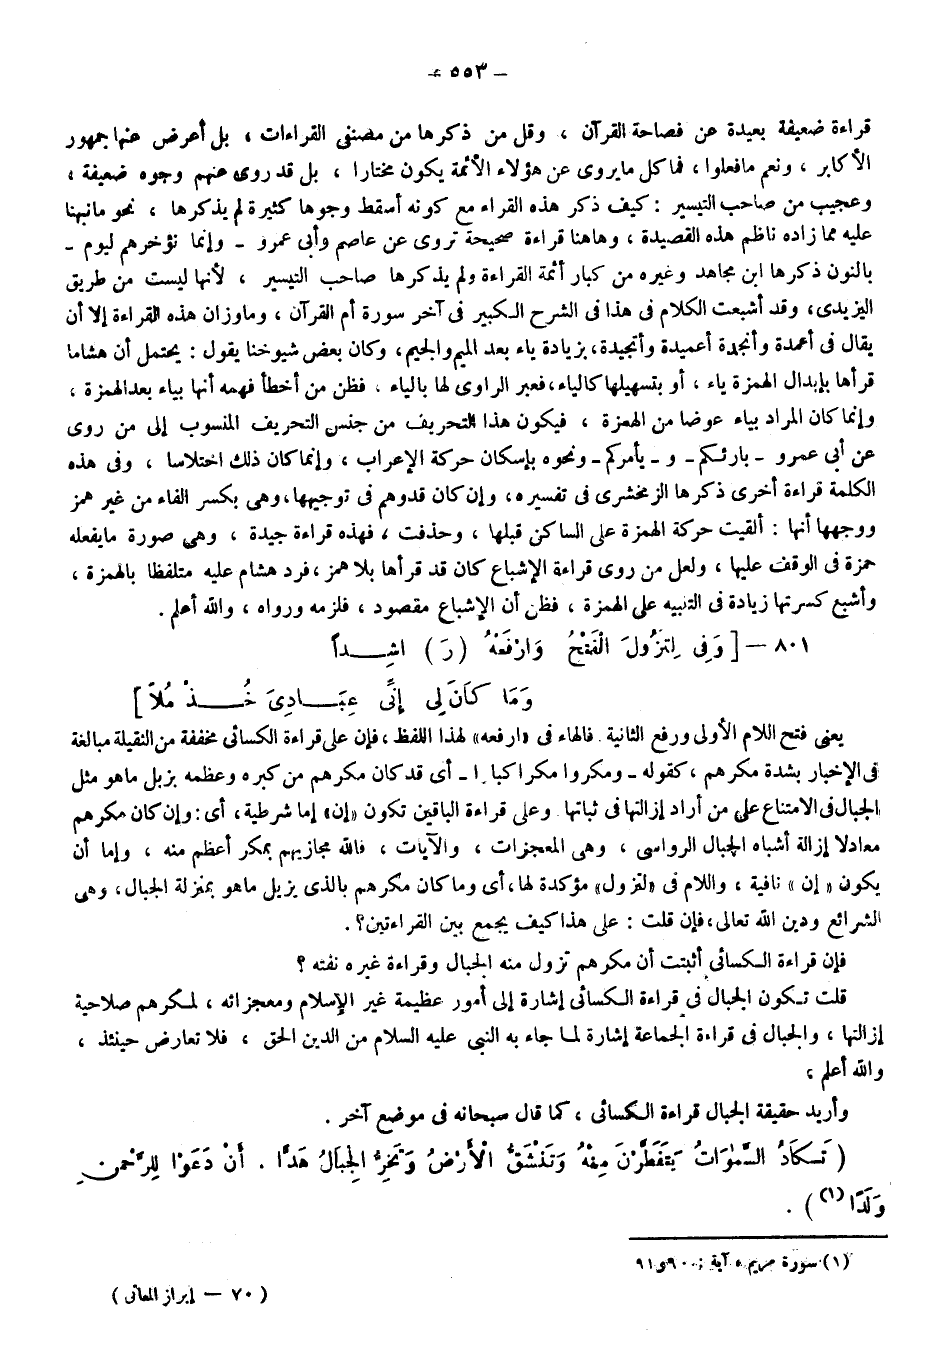 – ٥٥٣ –
قراءة ضعيفة بعيدة عن فصاحة القرآن ، وقل من ذكرها من مصنفى القراءات ، بل أعرض عنها جمهور
الأكابر ، ونعم مافعلوا ، فماكل مايروى عن هؤلاء الأئمة يكون مختارا ، بل قد روى عنهم وجوه ضعيفة ،
وعجيب من صاحب التيسير : كيف ذكر هذه القراء مع كونه أسقط وجوها كثيرة لم يذكرها ، نحو مانبهنا
عليه مما زاده ناظم هذه القصيدة ، وهاهنا قراءة صحيحة تروى عن عاصم وأبى عمرو – وإنما نؤخرهم ليوم –
بالنون ذكرها ابن مجاهد وغيره من كبار أئمة القراءة ولم يذكرها صاحب التيسير ، لأنها ليست من طريق
اليزيدى، وقد أشبعت الكلام فى هذا فى الشرح الكبير فى آخر سورة أم القرآن ، وماوزان هذه القراءة إلا أن
يقال فى أعمدة وأنجدة أعميدة وأنجيدة، بزيادة ياء بعد الميم والجيم، وكان بعض شيوخنا يقول : يحتمل أن هشاما
قرأها بإبدال الهمزة ياء ، أو بتسهيلها كالياء، فعبر الراوى لها بالياء . فظن من أخطأ فهمه أنها بياء بعدالهمزة ،
وإنما كان المراد بياء عوضا من الهمزة ، فيكون هذا التحريف من جنس التحريف المنسوب إلى من روى
عن أبى عمرو – بارئكم – و – يأمركم – ونحوه بإسكان حركة الإعراب ، وإنما كان ذلك اختلاسا ، وفى هذه
الكلمة قراءة أخرى ذكرها الزمخشرى فى تفسيره، وإن كان قدوهم فى توجيهها، وهى بكسر الفاء من غير همز
ووجهها أنها : ألقيت حركة الهمزة على الساكن قبلها ، وحذفت ، فهذه قراءة جيدة ، وهى صورة مايفعله
حمزة فى الوقف عليها ، ولعل من روى قراءة الإشباع كان قد قرأها بلا همز ، فرد هشام عليه متلفظا بالهمزة ،
وأشبع كسرتها زيادة فى التنبيه على الهمزة ، فظن أن الإشباع مقصود ، فلزمه ورواه ، والله أعلم .
٨٠١ – [ وَفِى لِتَزُولَ الْفَتْحُ وَارْفَعْهُ (رَ) اشِـداً
وَمَا كَانَ لِى إِنِّى عِبَـادِىَ خُـذْ مُلاَ ]
يعنى فتح اللام الأولى ورفع الثانية . فالهاء فى «ارفعه» لهذا اللفظ ، فإن على قراءة الكسائى مخففة من الثقيلة مبالغة
فى الإخبار بشدة مكرهم ، كقوله – ومكروا مكرا كبارا – أى قد كان مكرهم من كبره وعظمه يزيل ماهو مثل
الجبال فى الامتناع على من أراد إزالتها فى ثباتها وعلى قراءة الباقين تكون «إن» إما شرطية، أى : وإن كان مكرهم
معادلا إزالة أشباه الجبال الرواسى ، وهى المعجزات ، والآيات ، فالله مجازيهم بمكر أعظم منه ، وإما أن
يكون « إن » نافية ، واللام فى «لتزول» مؤكدة لها، أى وما كان مكرهم بالذى يزيل ماهو بمنزلة الجبال، وهى
الشرائع ودين الله تعالى ، فإن قلت : على هذا كيف يجمع بين القراءتين؟ .
فإن قراءة الكسائى أثبتت أن مكرهم تزول منه الجبال وقراءة غيره نفته ؟
قلت تكون الجبال فى قراءة الكسائى إشارة إلى أمور عظيمة غير الإسلام ومعجزاته ، لمكرهم صلاحية
إزالتها ، والجبال فى قراءة الجماعة إشارة لما جاء به النبى عليه السلام من الدين الحق ، فلا تعارض حينئذ ،
والله أعلم ،
وأريد حقيقة الجبال قراءة الكسائى ، كما قال سبحانه فى موضع آخر .
( تَكَادُ السَّمٰوَاتُ يَتَفَطَّرْنَ مِنْهُ وَتَنْشَقُّ الْأَرْضُ وَتَخِرُّ الْجِبَالُ هَدًّا . أَنْ دَعَوْا لِلرَّحْمٰنِ
وَلَدًا (١) ) .
(١) سورة مريم ، آية : ٩٠ و ٩١
( ٧٠ – إبراز المعانى )